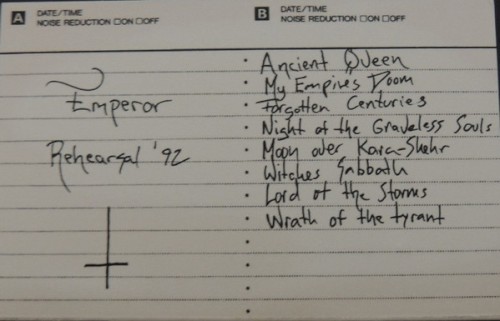 A DATE/TIME
NOISE REDUCTION ☐ON ☐OFF
Emperor
Rehearsal '92
B DATE/TIME
NOISE REDUCTION ☐ON ☐OFF
· Ancient Queen
· My Empires Doom
· Forgotten Centuries
· Night of the Graveless Souls
· Moon over Kara-Shehr
· Witches Sabbath
· Lord of the Storms
· Wrath of the tyrant